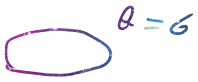 Q = 6